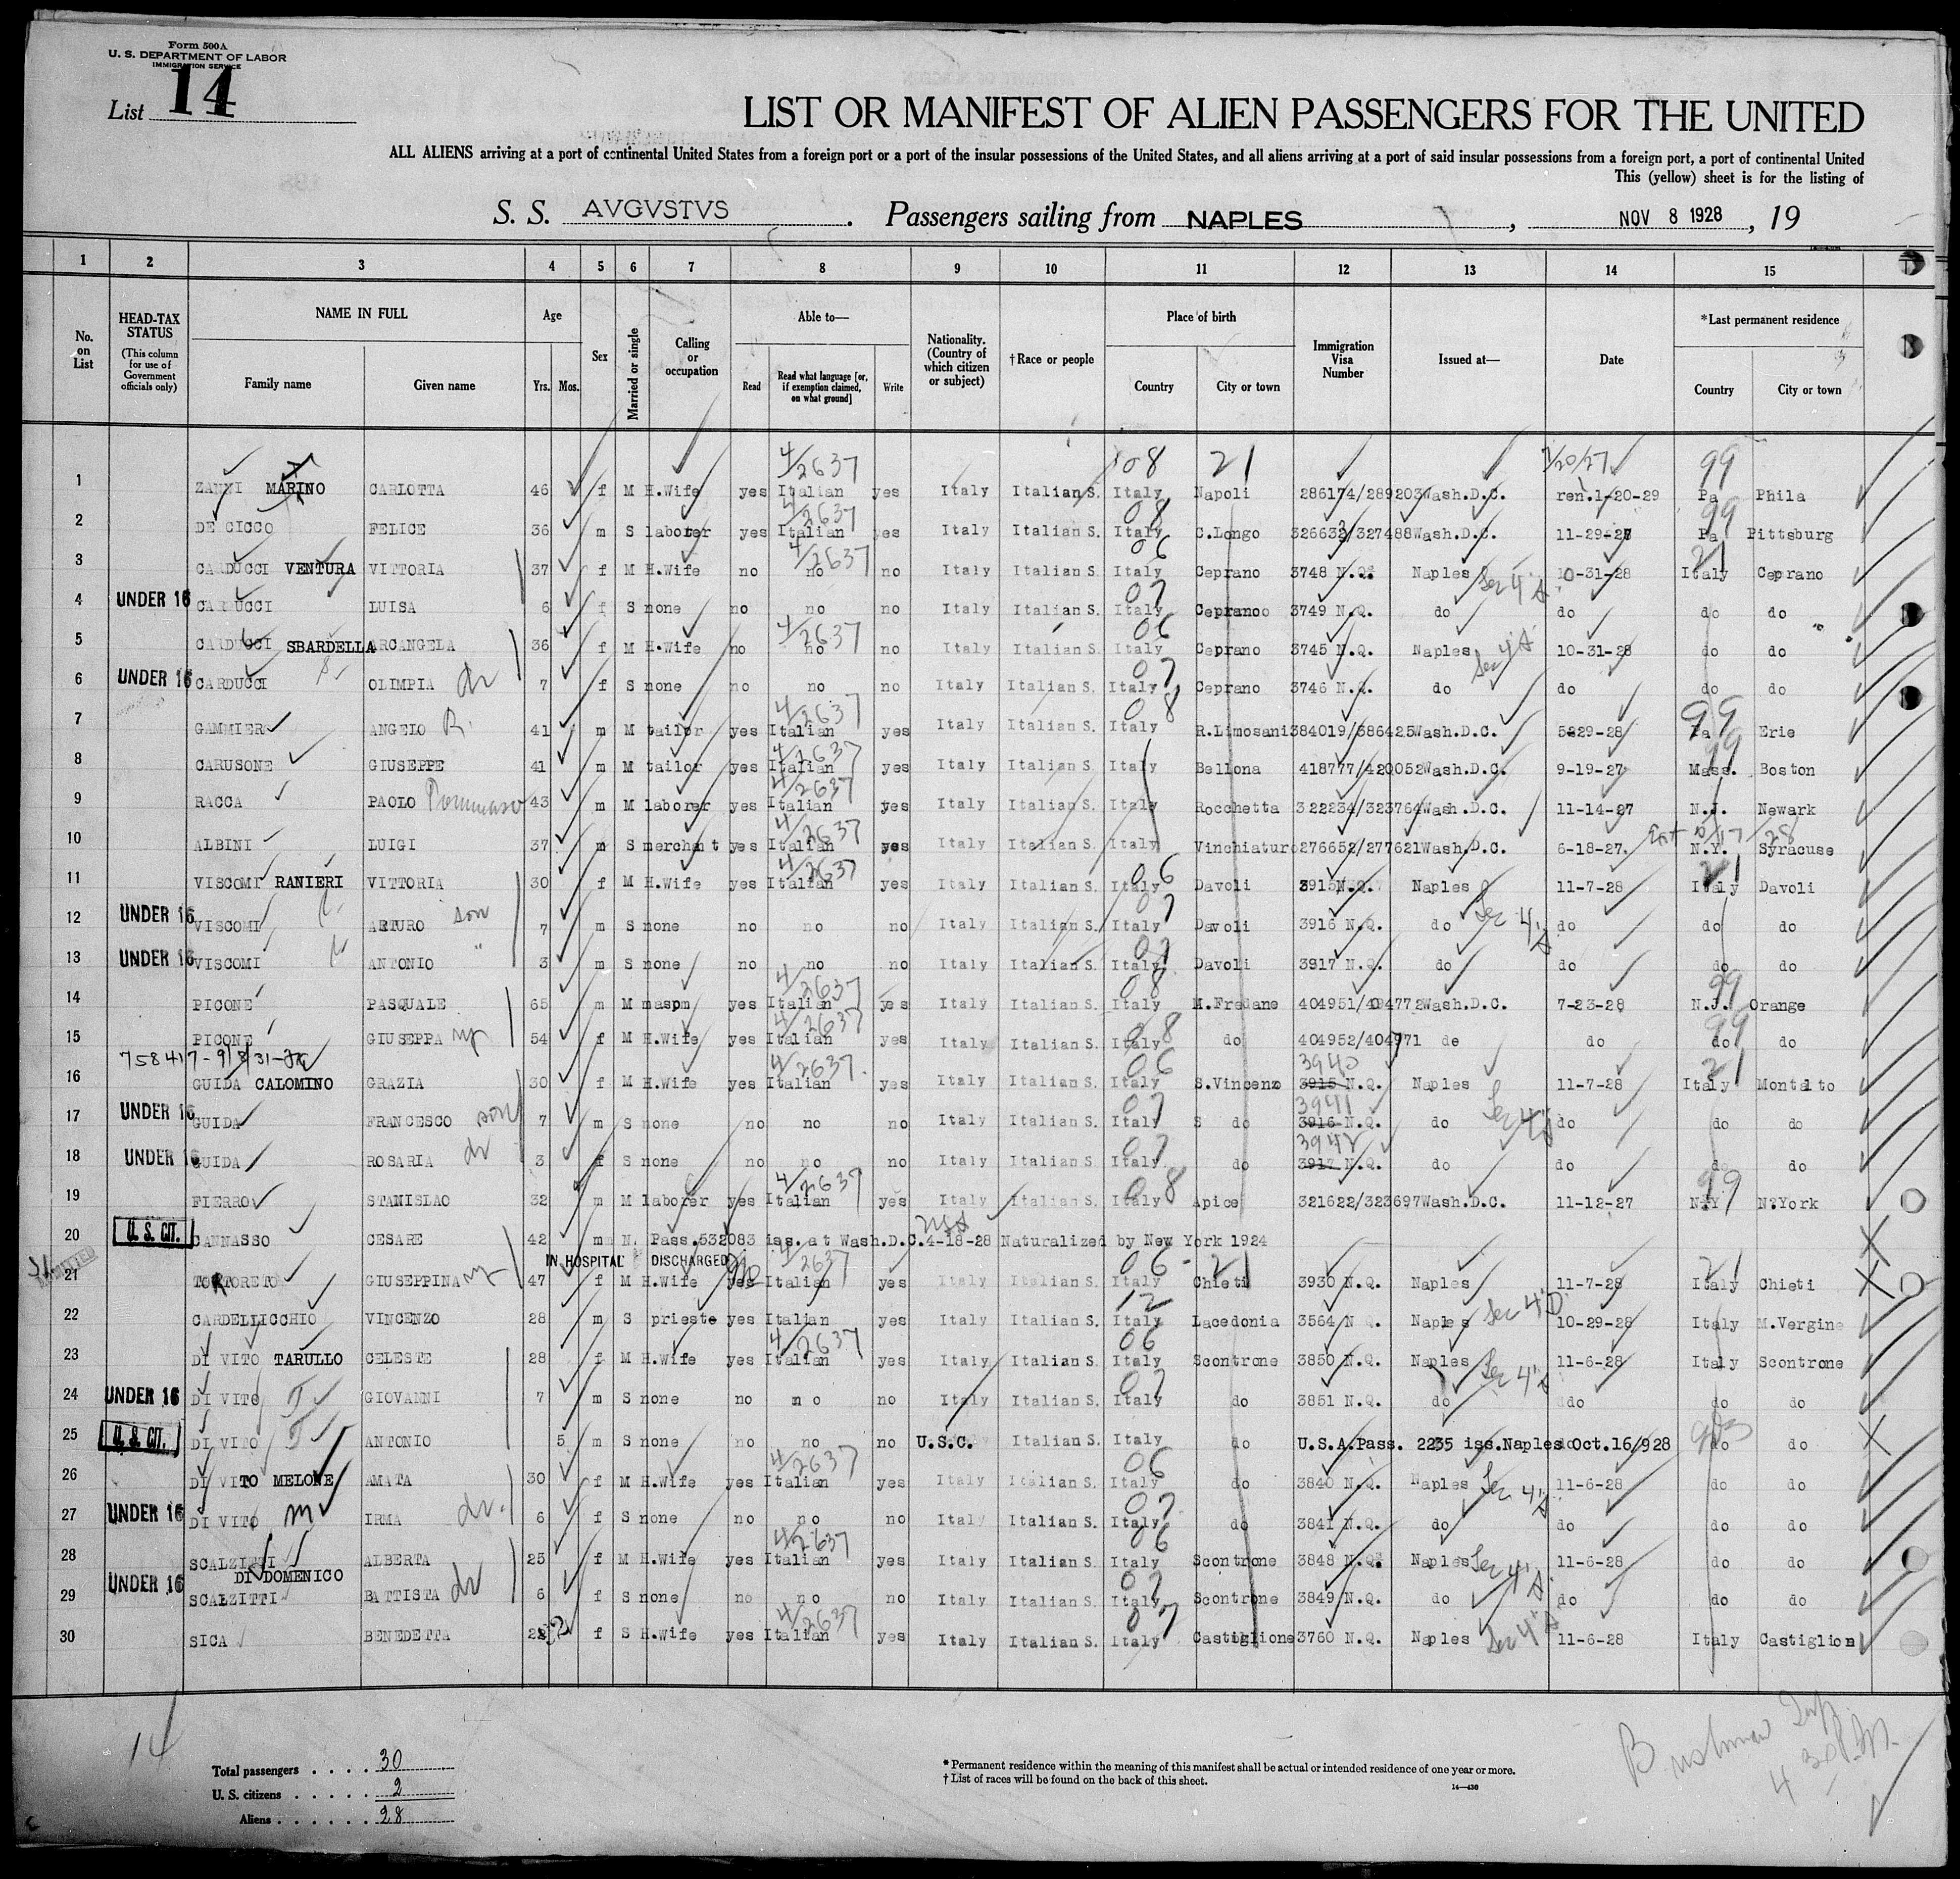 Form 500A
U. S. DEPARTMENT OF LABOR
IMMIGRATION SERVICE
List 14
LIST OR MANIFEST OF ALIEN PASSENGERS FOR THE UNITED
ALL ALIENS arriving at a port of continental United States from a foreign port or a port of the insular possessions of the United States, and all aliens arriving at a port of said insular possessions from a foreign port, a port of continental United
This (yellow) sheet is for the listing of
S. S. AVGVSTVS. Passengers sailing from NAPLES, NOV 8 1928, 19
1 2 3 4 5 6 7 8 9 10 11 12 13 14 15
No. on List
HEAD-TAX STATUS (This column for use of Government officials only)
NAME IN FULL
Family name
Given name
Age
Yrs. Mos.
Sex
Married or single
Calling or occupation
Able to—
Read
Read what language [or, if exemption claimed, on what ground]
Write
Nationality. (Country of which citizen or subject)
†Race or people
Place of birth
Country
City or town
Immigration Visa Number
Issued at—
Date
*Last permanent residence
Country
City or town
4/2637 08 21 1/20/27 99
1 ZANNI MARINO CARLOTTA 46 f M H.Wife yes Italian yes Italy Italian S. Italy Napoli 286174/289203 Wash.D.C. ren.1-20-29 Pa Phila
4/2637 08 99
2 DE CICCO FELICE 36 m S laborer yes Italian yes Italy Italian S. Italy C.Longo 326632/327488 Wash.D.C. 11-29-27 Pa Pittsburg
4/2637 06 21
3 CARDUCCI VENTURA VITTORIA 37 f M H.Wife no no no Italy Italian S. Italy Ceprano 3748 N.Q. Naples Sec 4 A 10-31-28 Italy Ceprano
07
4 UNDER 16 CARDUCCI LUISA 6 f S none no no no Italy Italian S. Italy Ceprano 3749 N.Q. do do do do
4/2637 06
5 CARDUCCI SBARDELLA ARCANGELA 36 f M H.Wife no no no Italy Italian S. Italy Ceprano 3745 N.Q. Naples Sec 4 A 10-31-28 do do
07
6 UNDER 16 CARDUCCI S. OLIMPIA dr 7 f S none no no no Italy Italian S. Italy Ceprano 3746 N.Q. do do do do
4/2637 08 99
7 GAMMIERO ANGELO R. 41 m M tailor yes Italian yes Italy Italian S. Italy R.Limosani 384019/386425 Wash.D.C. 5-29-28 Pa Erie
4/2637 99
8 CARUSONE GIUSEPPE 41 m M tailor yes Italian yes Italy Italian S. Italy Bellona 418777/420052 Wash.D.C. 9-19-27 Mass. Boston
4/2637
9 RACCA PAOLO Tommaso 43 m M laborer yes Italian yes Italy Italian S. Italy Rocchetta 322234/323764 Wash.D.C. 11-14-27 N.J. Newark
4/2637 Ext 10/17/28
10 ALBINI LUIGI 37 m S merchant yes Italian yes Italy Italian S. Italy Vinchiaturo 276652/277621 Wash.D.C. 6-18-27. N.Y. Syracuse
4/2637 06 21
11 VISCOMI RANIERI VITTORIA 30 f M H.Wife yes Italian yes Italy Italian S. Italy Davoli 3915 N.Q. Naples 11-7-28 Italy Davoli
07
12 UNDER 16 VISCOMI ARTURO son 7 m S none no no no Italy Italian S. Italy Davoli 3916 N.Q. do Sec 4 A do do do
07
13 UNDER 16 VISCOMI ANTONIO " 3 m S none no no no Italy Italian S. Italy Davoli 3917 N.Q. do do do do
4/2637 08 99
14 PICONE PASQUALE 65 m M maspn yes Italian yes Italy Italian S. Italy M.Fredane 404951/404772 Wash.D.C. 7-23-28 N.J. Orange
4/2637 08 99
15 PICONE GIUSEPPA 54 f M H.Wife yes Italian yes Italy Italian S. Italy do 404952/404971 de do do do
4/2637 06 3940 21
16 GUIDA CALOMINO GRAZIA 30 f M H.Wife yes Italian yes Italy Italian S. Italy S.Vincenzo 3915 N.Q. Naples 11-7-28 Italy Montalto
07 3941
17 UNDER 16 GUIDA FRANCESCO son 7 m S none no no no Italy Italian S. Italy S do 3916 N.Q. do Sec 4 A do do do
07 3942
18 UNDER 16 GUIDA ROSARIA dr 3 f S none no no no Italy Italian S. Italy do 3917 N.Q. do do do do
4/2637 08 99
19 FIERRO STANISLAO 32 m M laborer yes Italian yes Italy Italian S. Italy Apice 321622/323697 Wash.D.C. 11-12-27 N.Y N.York
20 U. S. CIT. CANNASSO CESARE 42 m Pass.532083 iss. at Wash.D.C.4-18-28 Naturalized by New York 1924
IN HOSPITAL DISCHARGED 4/2637 06 21 21
21 TORTORETO GIUSEPPINA 47 f M H.Wife yes Italian yes Italy Italian S. Italy Chieti 3930 N.Q. Naples 11-7-28 Italy Chieti
12
22 CARDELLICCHIO VINCENZO 28 m S prieste yes Italian yes Italy Italian S. Italy Lacedonia 3564 N Q. Naples Sec 4 D 10-29-28 Italy M.Vergine
4/2637 06
23 DI VITO TARULLO CELESTE 28 f M H.Wife yes Italian yes Italy Italian S. Italy Scontrone 3850 N.Q. Naples Sec 4 A 11-6-28 Italy Scontrone
07
24 UNDER 16 DI VITO T GIOVANNI 7 m S none no no no Italy Italian S. Italy do 3851 N.Q. do do do do
25 U. S. CIT. DI VITO T ANTONIO 5 m S none no no no U.S.C. Italian S. Italy do U.S.A.Pass. 2235 iss.Naples Oct.16/928 do do
4/2637 06
26 DI VITO MELONE AMATA 30 f M H.Wife yes Italian yes Italy Italian S. Italy do 3840 N.Q. Naples Sec 4 A 11-6-28 do do
07
27 UNDER 16 DI VITO M IRMA dr. 6 f S none no no no Italy Italian S. Italy do 3841 N.Q. do do do do
4/2637 06
28 SCALZITTI DI DOMENICO ALBERTA 25 f M H.Wife yes Italian yes Italy Italian S. Italy Scontrone 3848 N.Q. Naples Sec 4 A 11-6-28 do do
07
29 UNDER 16 SCALZITTI BATTISTA dr 6 f S none no no no Italy Italian S. Italy Scontrone 3849 N.Q. do do do do
4/2637 07
30 SICA BENEDETTA f S H.Wife yes Italian yes Italy Italian S. Italy Castiglione 3760 N.Q. Naples Sec 4 A 11-6-28 Italy Castiglion
14
Total passengers . . . . 30
U. S. citizens . . . . . 2
Aliens . . . . . . 28
* Permanent residence within the meaning of this manifest shall be actual or intended residence of one year or more.
† List of races will be found on the back of this sheet.
14—430